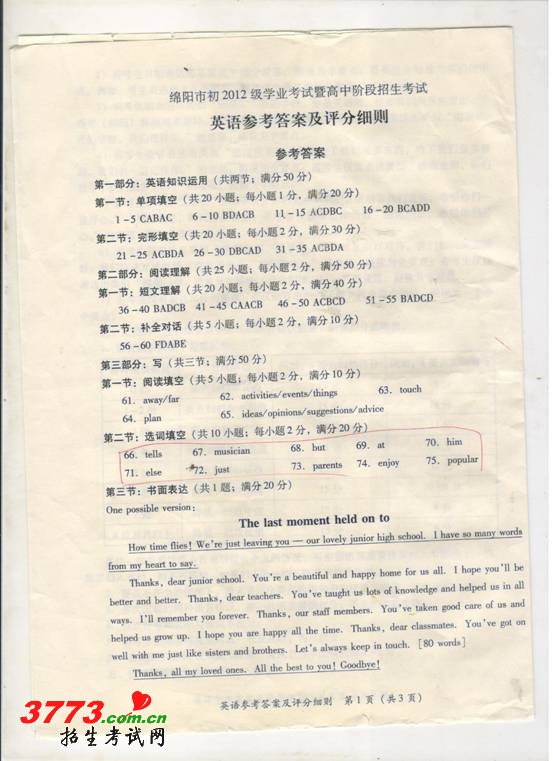 绵阳市初2012级学业考试暨高中阶段招生考试
英语参考答案及评分细则
参考答案
第一部分：英语知识运用（共两节；满分50分）
第一节：单项填空（共20小题；每小题1分，满分20分）
1-5 CABAC 6-10 BDACB 11-15 ACDBC 16-20 BCADD
第二节：完形填空（共20小题；每小题2分，满分30分）
21-25 ACBDA 26-30 DBCAD 31-35 ACBDA
第二部分：阅读理解（共25小题；每小题2分，满分50分）
第一节：短文理解（共20小题；每小题2分，满分40分）
36-40 BADCB 41-45 CAACB 46-50 ACBCD 51-55 BADCD
第二节：补全对话（共5小题；每小题2分，满分10分）
56-60 FDABE
第三部分：写（共三节；满分50分）
第一节：阅读填空（共5小题；每小题2分，满分10分）
61. away/far 62. activities/events/things 63. touch
64. plan 65. ideas/opinions/suggestions/advice
第二节：选词填空（共10小题；每小题2分，满分20分）
66. tells 67. musician 68. but 69. at 70. him
71. else 72. just 73. parents 74. enjoy 75. popular
第三节：书面表达（共1题；满分20分）
One possible version:
The last moment held on to
How time flies! We're just leaving you — our lovely junior high school. I have so many words
from my heart to say.
Thanks, dear junior school. You're a beautiful and happy home for us all. I hope you'll be
better and better. Thanks, dear teachers. You've taught us lots of knowledge and helped us in all
ways. I'll remember you forever. Thanks, our staff members. You've taken good care of us and
helped us grow up. I hope you are happy all the time. Thanks, dear classmates. You've got on
well with me just like sisters and brothers. Let's always keep in touch. [80 words]
Thanks, all my loved ones. All the best to you! Goodbye!
英语参考答案及评分细则 第1页（共3页）
3773.com.cn
招生考试网